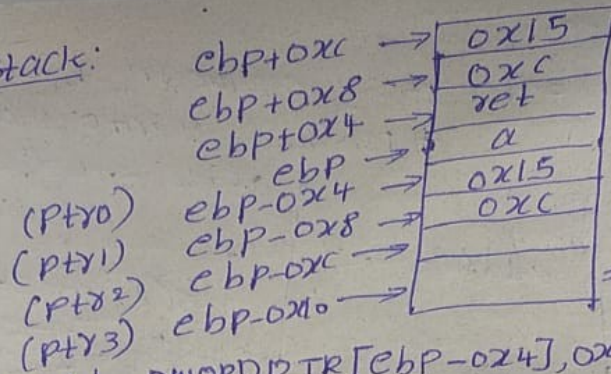 tack:
ebp+0xc → 0x15
ebp+0x8 → 0xc
ebp+0x4 → ret
ebp → a
(ptr0) ebp-0x4 → 0x15
(ptr1) ebp-0x8 → 0xc
(ptr2) ebp-0xc →
(ptr3) ebp-0x10 →
PTR[ebp-0x4],0x